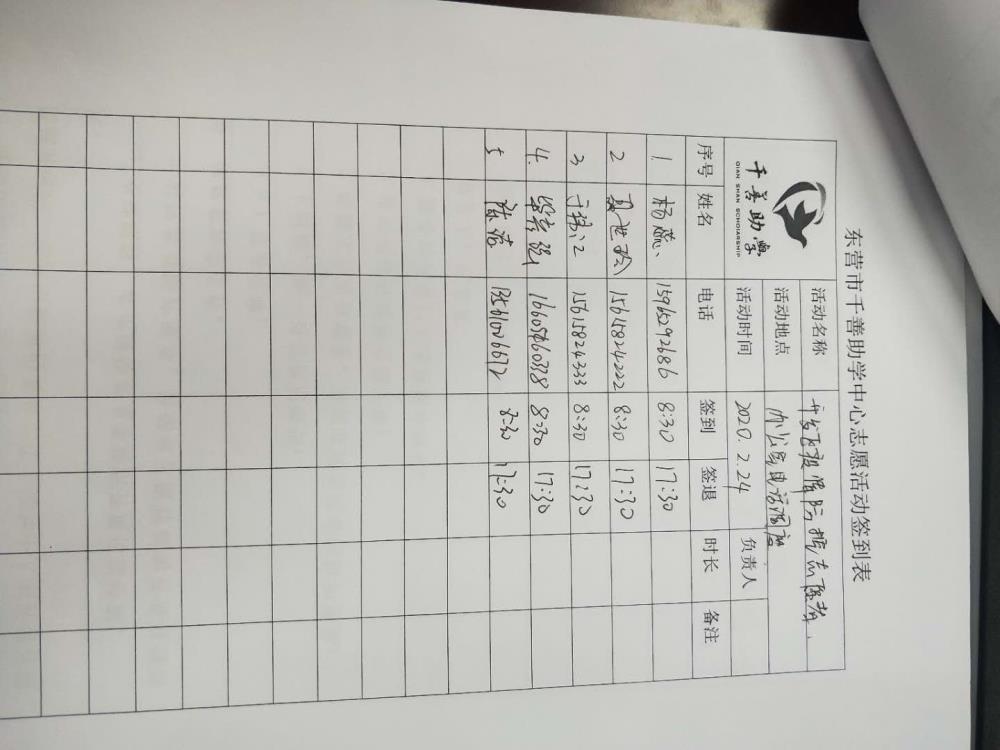 东营市千善助学中心志愿活动签到表
千善助学
QIAN SHAN SCHOLARSHIP
活动名称 开发区疫情防控志愿者
活动地点 办公室电话调度
活动时间 2020.2.24 负责人
序号 姓名 电话 签到 签退 时长 备注
1 杨蕊 15965292686 8:30 17:30
2 夏世玲 15615824222 8:30 17:30
3 15615824333 8:30 17:30
4. 16605460338 8:30 17:30
5 陈洁 13561006672 8:30 17:30